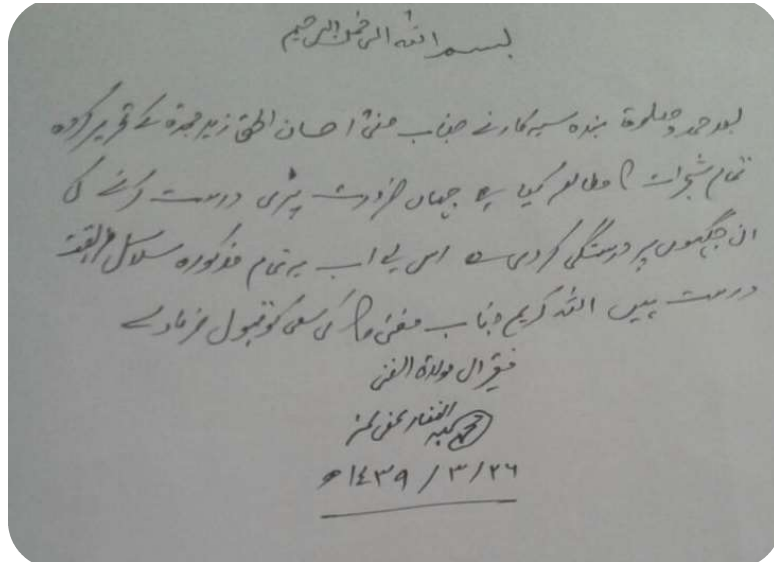 بسم اللہ الرحمن الرحیم
بعد حمد وصلوۃ بندہ سیہ کار نے جناب مفتی احسان الحق زید مجدہ کے تحریر کردہ
تمام شجرات کا مطالعہ کیا ہے جہاں ضرورت پڑی درست کرنے کی
ان جگہوں پر درستگی کردی ہے اس لیے اب یہ تمام مذکورہ سلاسل طریقت
درست ہیں اللہ کریم جناب مفتی صاحب کی سعی کو قبول فرماوے
فقیر الی مولاہ الغنی
محمد عبد الغفار عفی عنہ
۲۶ / ۳ / ۱٤۳۹ھ